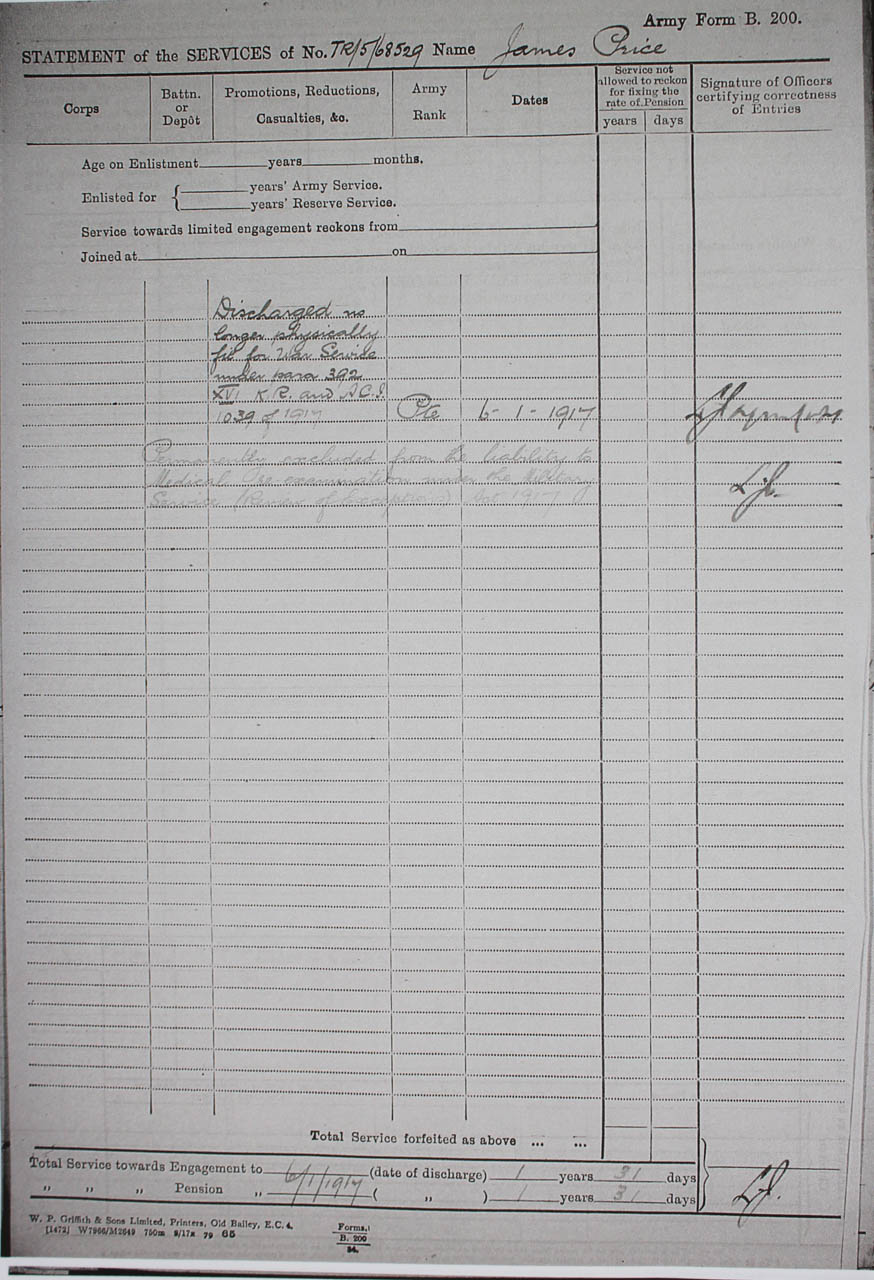 Army Form B. 200.
STATEMENT of the SERVICES of No. TR/5/68529 Name James Price
Corps
Battn. or Depôt
Promotions, Reductions, Casualties, &c.
Army Rank
Dates
Service not allowed to reckon for fixing the rate of Pension
years days
Signature of Officers certifying correctness of Entries
Age on Enlistment years months.
Enlisted for { years' Army Service.
years' Reserve Service.
Service towards limited engagement reckons from
Joined at on
Discharged no
longer physically
fit for War Service
under para 392
XVI K.R. and A.C.I.
1039 of 1917 Pte 6-1-1917
Permanently excluded from the liability to
Medical Re-examination under the Military
Service (Review of Exceptions) Act 1917
Total Service forfeited as above ... ...
Total Service towards Engagement to 6/1/1917 (date of discharge) 1 years 31 days
„ „ „ Pension „ 6/1/1917 ( „ ) 1 years 31 days
W. P. Griffith & Sons Limited, Printers, Old Bailey, E.C. 4.
[1472] W7966/M2649 750m 9/17R 79 65
Forms,
B. 200